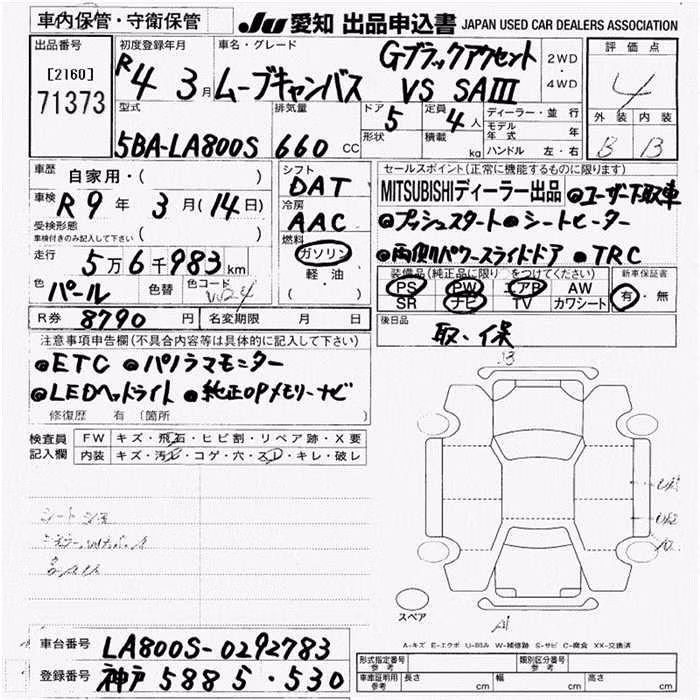 車内保管・守衛保管
JU 愛知 出品申込書 JAPAN USED CAR DEALERS ASSOCIATION
出品番号
[2160]
71373
初度登録年月
R4 3月
車名・グレード
ムーブキャンバス
Gブラックアクセント
VS SAⅢ
2WD
・
4WD
評価点
4
外装 内装
B B
型式
5BA-LA800S
排気量
660 CC
ドア 5
形状
定員 4人
積載 kg
ディーラー・並行
モデル年式 年
ハンドル 左・右
車歴 自家用・( )
車検 R9年 3月(14日)
受検形態
車検付きのみ記入して下さい ( )
走行 5万6千983km
色 パール
色替 ( )
色コード W24
R券 8790円
名変期限 月 日
シフト
DAT
冷房
AAC
燃料
ガソリン
軽・油
( )
セールスポイント(正常に機能するものに限ります)
MITSUBISHIディーラー出品 ●ユーザー下取車
●プッシュスタート ●シートヒーター
●両側パワースライドドア ●TRC
装備品(純正品に限り○をつけてください)
PS PW エアB AW
SR ナビ TV カワシート
新車保証書
有・無
後日品
取・保
注意事項申告欄(不具合内容等は具体的に記入して下さい)
●ETC ●パノラマモニター
●LEDヘッドライト ●純正OPメモリーナビ
修復歴 有 (箇所 )
検査員記入欄
FW キズ・飛石・ヒビ割・リペア跡・X要
内装 キズ・汚レ・コゲ・穴・スレ・キレ・破レ
スペア
A1
A-キズ E-エクボ U-凹み W-補修跡 S-サビ C-腐食 XX-交換済
車台番号 LA800S-0292783
登録番号 神戸 588 ら・530
形式指定番号 参考
類別区分番号 参考
車庫証明用 参考 長さ cm 幅 cm 高さ cm